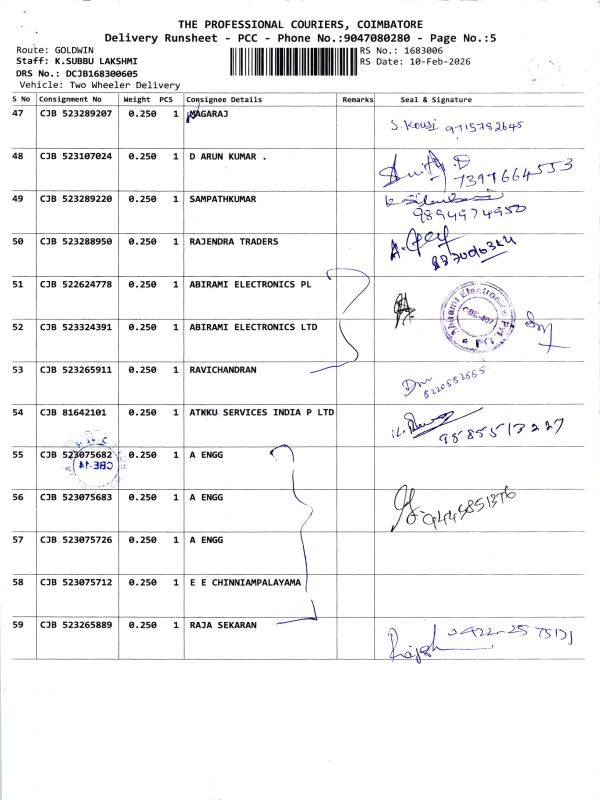 THE PROFESSIONAL COURIERS, COIMBATORE
Delivery Runsheet - PCC - Phone No.:9047080280 - Page No.:5
Route: GOLDWIN
RS No.: 1683006
Staff: K.SUBBU LAKSHMI
RS Date: 10-Feb-2026
DRS No.: DCJB168300605
Vehicle: Two Wheeler Delivery
S No Consignment No Weight PCS Consignee Details Remarks Seal & Signature
47 CJB 523289207 0.250 1 NAGARAJ
S. Kousi 9715782645
48 CJB 523107024 0.250 1 D ARUN KUMAR .
7397664553
49 CJB 523289220 0.250 1 SAMPATHKUMAR
9894974950
50 CJB 523288950 0.250 1 RAJENDRA TRADERS
51 CJB 522624778 0.250 1 ABIRAMI ELECTRONICS PL
Abirami Electronics Pvt.
52 CJB 523324391 0.250 1 ABIRAMI ELECTRONICS LTD
53 CJB 523265911 0.250 1 RAVICHANDRAN
54 CJB 81642101 0.250 1 ATKKU SERVICES INDIA P LTD
9585513227
55 CJB 523075682 0.250 1 A ENGG
CBE-14
56 CJB 523075683 0.250 1 A ENGG
57 CJB 523075726 0.250 1 A ENGG
58 CJB 523075712 0.250 1 E E CHINNIAMPALAYAMA
59 CJB 523265889 0.250 1 RAJA SEKARAN
Rajesh